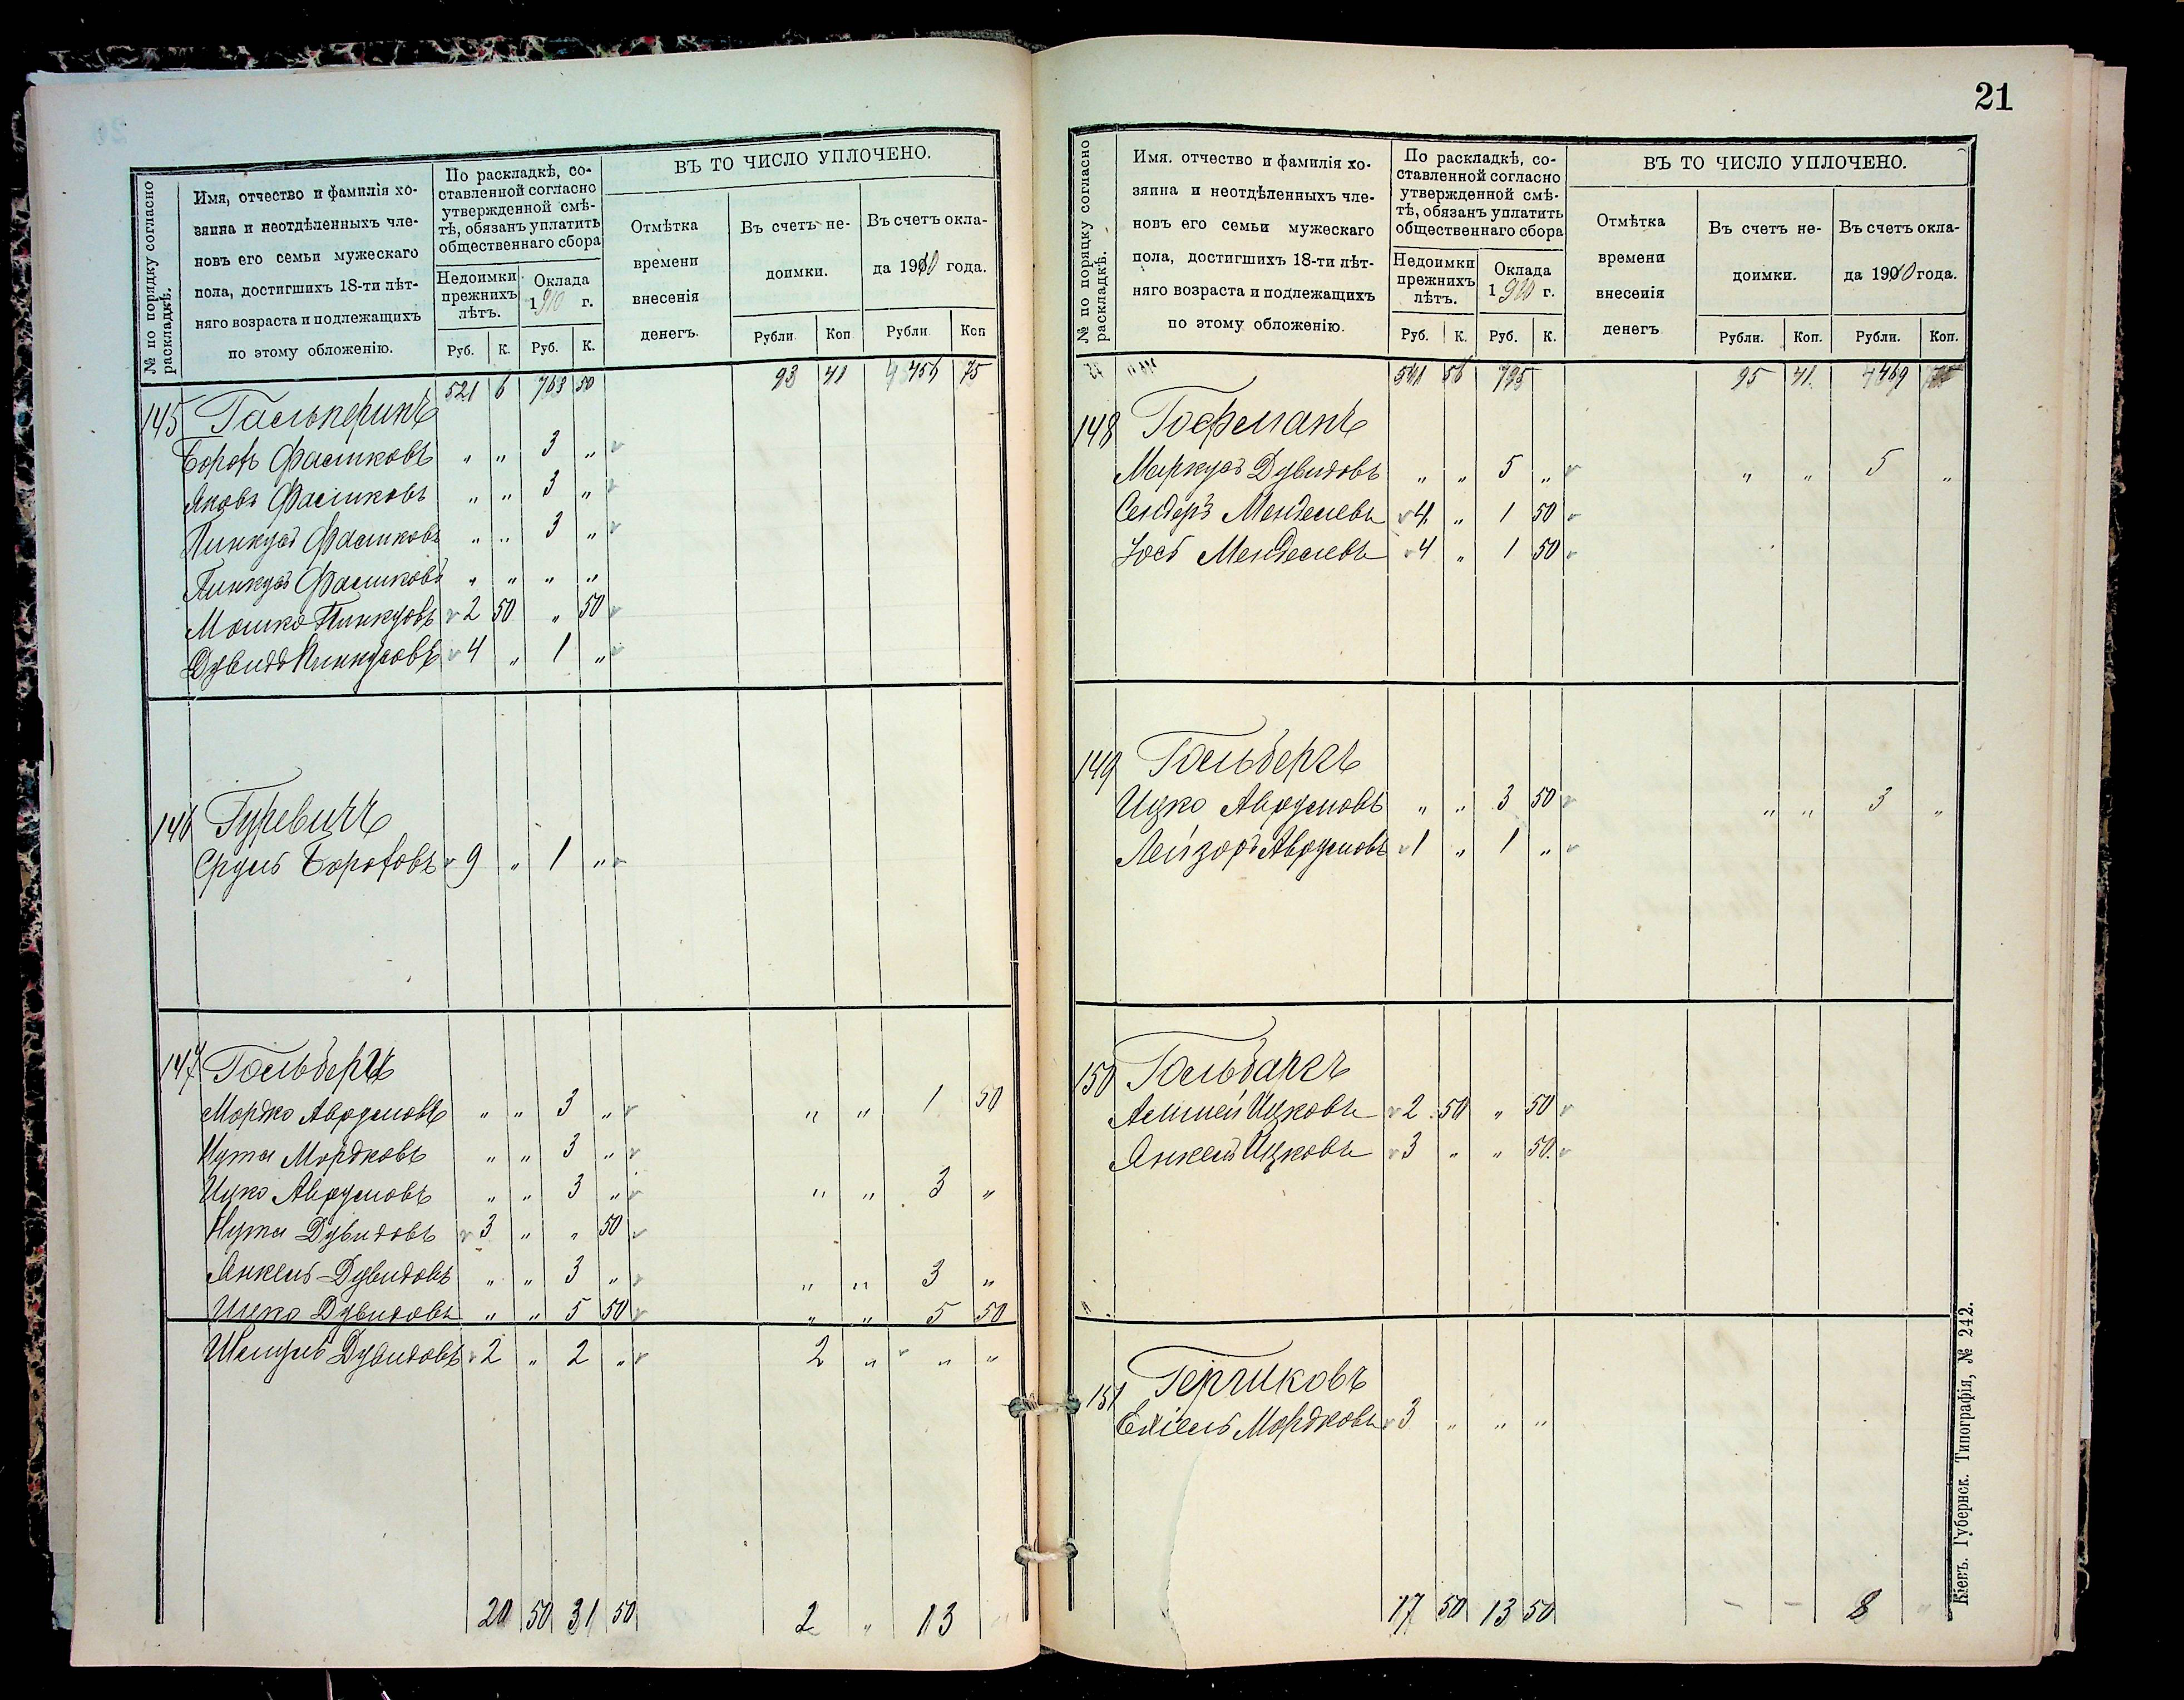 № по порядку согласно раскладкѣ.
Имя, отчество и фамилія хо-
зяина и неотдѣленныхъ чле-
новъ его семьи мужескаго
пола, достигшихъ 18-ти лѣт-
няго возраста и подлежащихъ
по этому обложенію.
По раскладкѣ, со-
ставленной согласно
утвержденной смѣ-
тѣ, обязанъ уплатить
общественнаго сбора
Недоимки
прежнихъ
лѣтъ.
Оклада
1910 г.
Руб. К. Руб. К.
ВЪ ТО ЧИСЛО УПЛОЧЕНО.
Отмѣтка
времени
внесенія
денегъ.
Въ счетъ не-
доимки.
Въ счетъ окла-
да 1910 года.
Рубли Коп Рубли Коп
521 6 763 50 93 41 456 75
145 Гальперинъ
Борохъ Фаликовъ „ „ 3 „
Яковъ Фаликовъ „ „ 3 „
Пинкусъ Фаликовъ „ „ 3 „
Пинкусъ Фаликовъ „ „ „ „
Мошко Пинкусовъ 2 50 „ 50
Дувидъ Пинкусовъ 4 „ 1 „
146 Гуревичъ
Сруль Бороховъ 9 „ 1 „
147 Гольбергъ
Мордко Аврумовъ „ „ 3 „ „ „ 1 50
Нута Мордковъ „ „ 3 „
Ицко Аврумовъ „ „ 3 „ „ „ 3 „
Нута Дувидовъ 3 „ „ 50
Янкель-Дувидовъ „ „ 3 „ „ „ 3 „
Ицко Дувидовъ „ „ 5 50 „ „ 5 50
Шмуль Дувидовъ 2 „ 2 „ 2 „ „ „
20 50 31 50 2 „ 13
21
№ по порядку согласно раскладкѣ.
Имя. отчество и фамилія хо-
зяина и неотдѣленныхъ чле-
новъ его семьи мужескаго
пола, достигшихъ 18-ти лѣт-
няго возраста и подлежащихъ
по этому обложенію.
По раскладкѣ, со-
ставленной согласно
утвержденной смѣ-
тѣ, обязанъ уплатить
общественнаго сбора
Недоимки
прежнихъ
лѣтъ.
Оклада
1910 г.
Руб. К. Руб. К.
ВЪ ТО ЧИСЛО УПЛОЧЕНО.
Отмѣтка
времени
внесенія
денегъ
Въ счетъ не-
доимки.
Въ счетъ окла-
да 1910 года.
Рубли. Коп. Рубли. Коп.
541 56 795 95 41. 469
148 Гофманъ
Маркусъ Дувидовъ „ „ 5 „ „ „ 5 „
Сендеръ Менделевъ 4 „ 1 50
Іось Менделевъ 4 „ 1 50
149 Гольбергъ
Ицко Аврумовъ „ „ 3 50 „ „ 3 „
Лейзоръ Аврумовъ 1 „ 1 „
150 Гольбаргъ
Ицковъ 2 50 „ 50
Янкель Ицковъ 3 „ „ 50.
151 Герчиковъ
Ехіель Мордковъ 3 „ „ „
17 50 13 50 – – 8 „
Кіевъ. Губернск. Типографія, № 242.